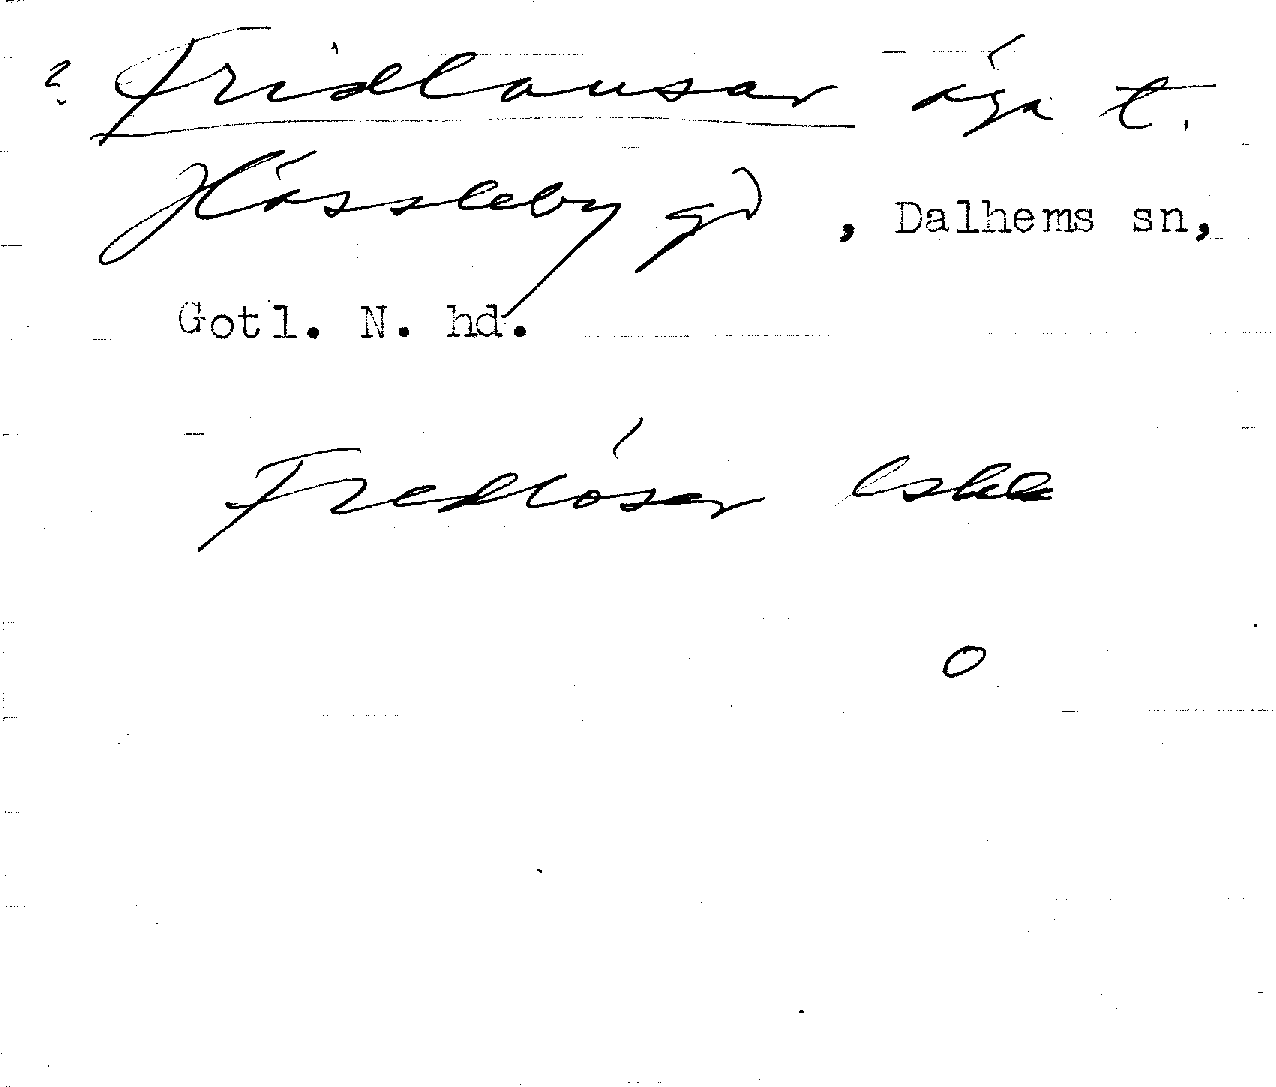 ? Fridlausar äga t.
Hässleby gd, Dalhems sn,
Gotl. N. hd.
Fredlösar Eskk
o